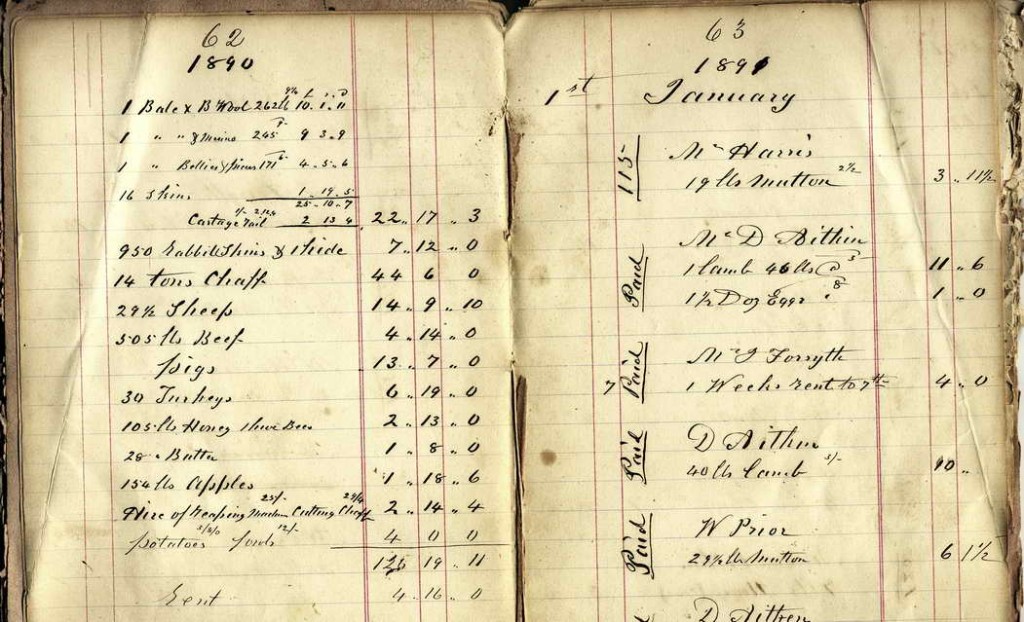 62
1890
9½ £ s. D
1 Bale x B Wool 262 lb 10. 1. 11
1 " " & Merino 245 9 3. 9
1 " Bellies & 171 6 4. 5. 6
16 Skins 1. 19. 5
25. 10. 7
Cartage 2 13 4 22 .. 17 .. 3
950 Rabbit Skins & 1 hide 7 .. 12 .. 0
14 tons Chaff 44 6 0
29½ Sheep 14 .. 9 .. 10
505 lbs Beef 4 .. 14 .. 0
pigs 13. 7 .. 0
30 Turkeys 6 .. 19 .. 0
105 lbs Honey 1 hive Bees 2 .. 13 .. 0
28 " Butter 1 .. 8 .. 0
154 lbs Apples 1 .. 18 .. 6
25/- 29/4
Hire of Reaping Machine Cutting Chaff 2 .. 14 .. 4
12/-
potatoes fowls 4 0 0
126 19 11
Rent 4 .. 16 .. 0
63
1891
1st January
115
Mr Harris
19 lbs Mutton 2½ 3 .. 11½
Mr D Aitkin
Paid
1 lamb 46 lbs @ 3 11 .. 6
1½ Doz Eggs " 8 1 .. 0
Mr J Forsyth
7 Paid
1 Weeks rent to 7th 4 .. 0
D Aitkin
Paid
40 lbs lamb 3/- 10 ..
W Prior
Paid
29½ lbs Mutton 6 1½
D Aitken